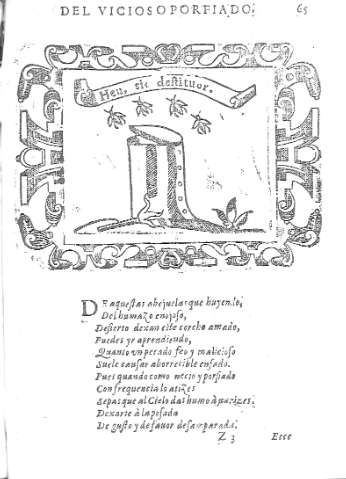 DEL VICIOSO PORFIADO. 65
Heu, sic destituor.
DE aquestas abejuelas que huyen lo,
Del humazo enojoso,
Desierto dexan este corcho amado,
Puedes yr aprendiendo,
Quanto un pecado feo y malicioso
Suele causar aborrecible enfado.
Pues quando como necio y porfiado
Con frequencia lo atizes
Sepas que al Cielo das humo à narizes.
Dexarte à la posada
De gusto y de favor desamparada.
Z 3 Esse